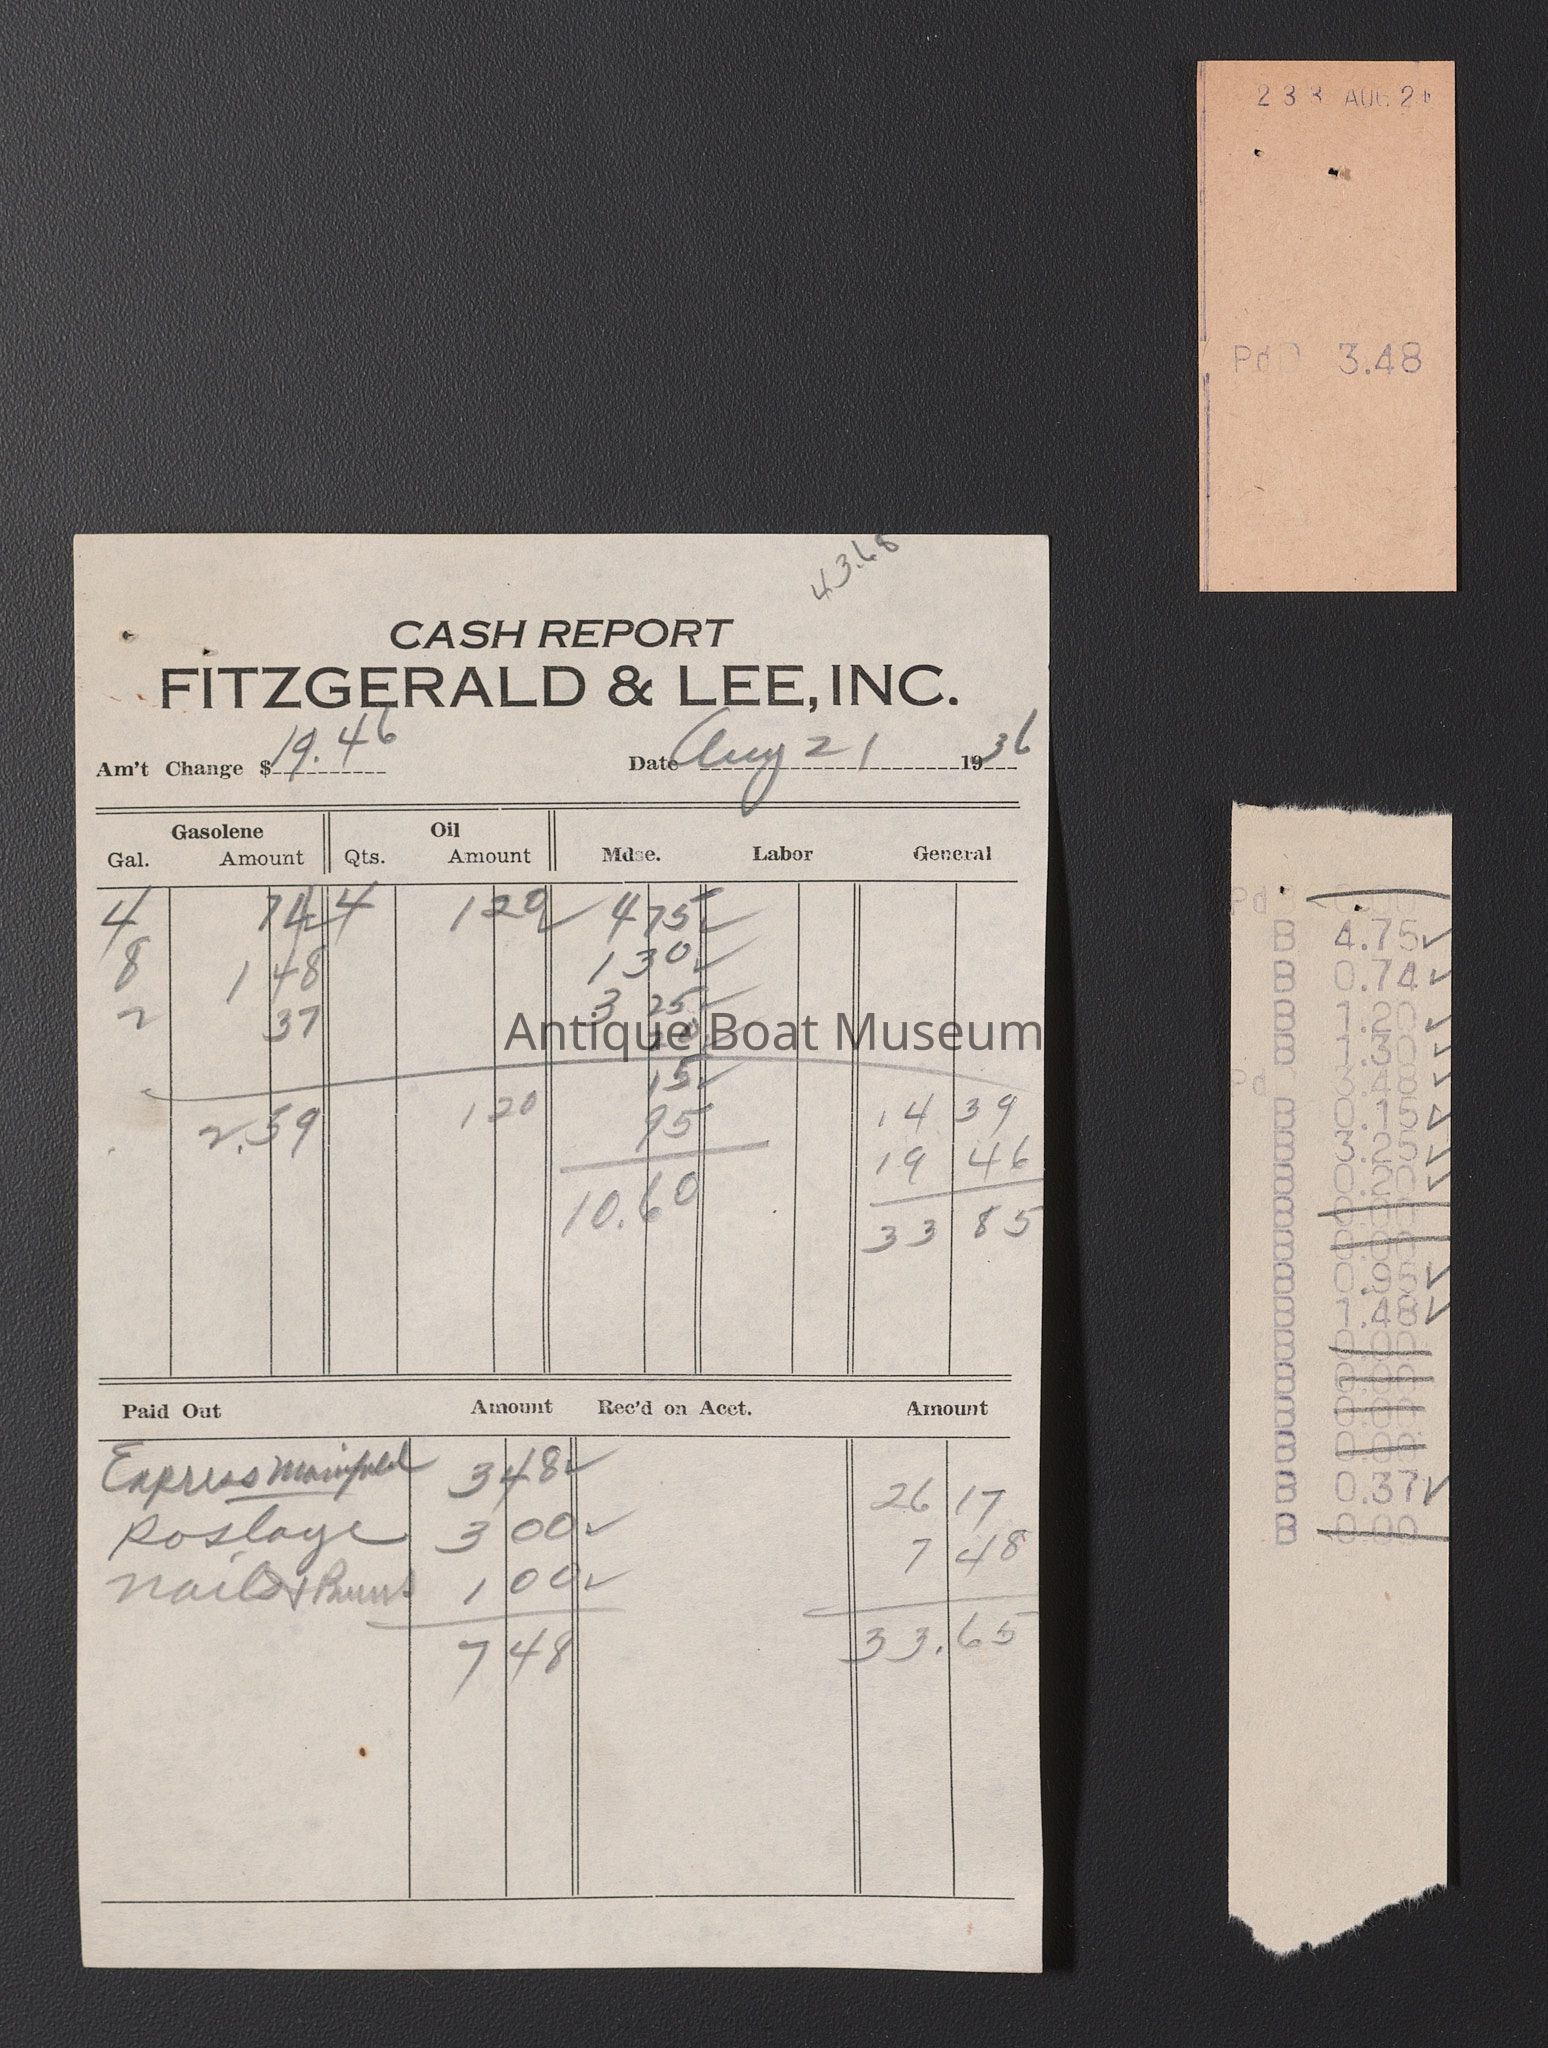 233 AUG 2
Pd 3.48
43.68
CASH REPORT
FITZGERALD & LEE, INC.
Am't Change $ 19.46 Date Aug 21 1936
Gasolene Oil
Gal. Amount Qts. Amount Mdse. Labor General
4 74 4 120 ✓ 475 ✓
8 148 130 ✓
2 37 3 25 ✓
20 ✓
15 ✓
2.59 120 95 14 39
19 46
10.60 33 85
Antique Boat Museum
Paid Out Amount Rec'd on Acct. Amount
Express Manifold 348 ✓ 26 17
Postage 3 00 ✓ 7 48
Nails & 1 00 ✓
7 48 33.65
Pd
B 4.75 ✓
B 0.74 ✓
B 1.20 ✓
B 1.30 ✓
Pd 3.48 ✓
B 0.15 ✓
B 3.25 ✓
B 0.20 ✓
B 0.00
B 0.00
B 0.95 ✓
B 1.48 ✓
B 0.00
B 0.00
B 0.00
B 0.00
B 0.37 ✓
B 0.00